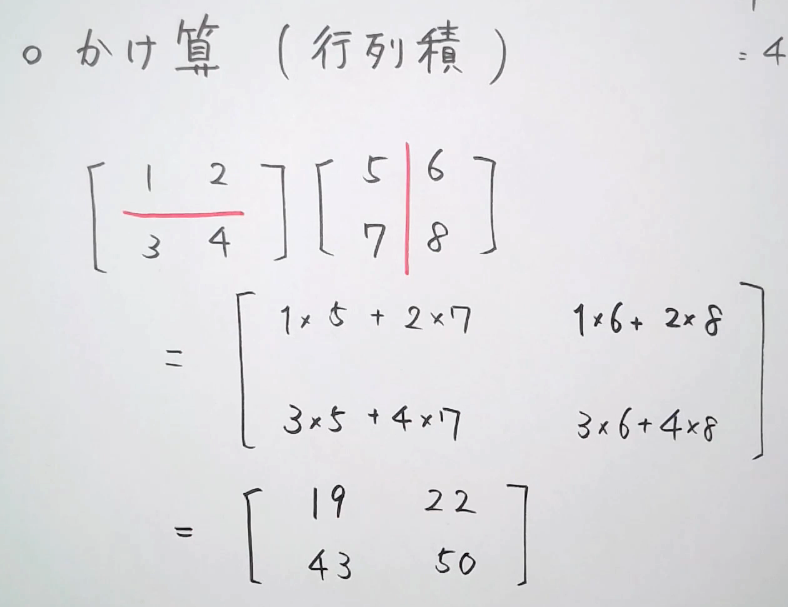 ○ かけ算 (行列積)
= 4
[ 1 2 ] [ 5 6 ]
[ 3 4 ] [ 7 8 ]
= [ 1×5 + 2×7 1×6 + 2×8 ]
[ 3×5 + 4×7 3×6 + 4×8 ]
= [ 19 22 ]
[ 43 50 ]